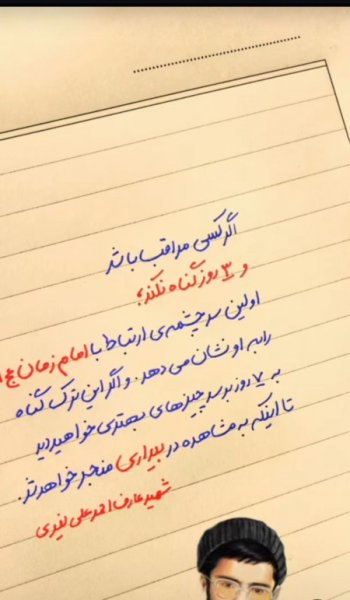 اگر کسی مراقب باشد
و ۳ روز گناه نکند؛
اولین سرچشمه‌ی ارتباط با امام زمان عج
را به او نشان می‌دهد. و اگر این ترک گناه
به ۷ روز برسد چیزهای بهتری خواهید دید
تا اینکه به مشاهده در بیداری منجر خواهد شد.
شهید عارف احمد علی نیری